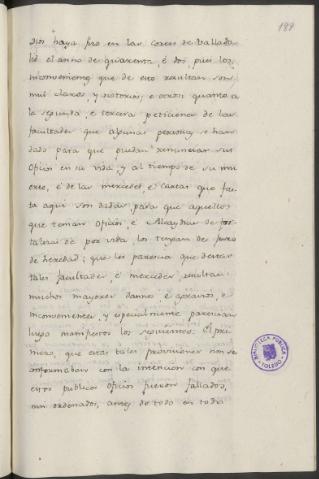 199
Dios haya fizo en las Cortes de Vallado
lid el anno de quarenta, é dos, pues los
inconvenientes que de esto resultan son
mui claros, y notorios; é otrosi quanto a
la segunda, é tercera peticiones de las
facultades que algunas personas se han
dado para que puedan renunciar sus
oficios en su vida, y al tiempo de su mu
erte, é de las mercedes, é Cartas que fas
ta aqui son dadas, para que aquellos
que tenian oficios, é Alcaydias de for
talezas de por vida, los tengan de juro
de heredad; que les parescia que de estas
tales facultades, é mercedes resultan
muchos mayores dannos é agravios, é
inconvenientes, y especialmente parescian
luego manifiestos los siguientes: El pri
mero, que estas tales provisiones non se
conformaban con la intencion con que
estos publicos oficios fueron fallados,
nin ordenados, antes de todo en todo
BIBLIOTECA PUBLICA
TOLEDO